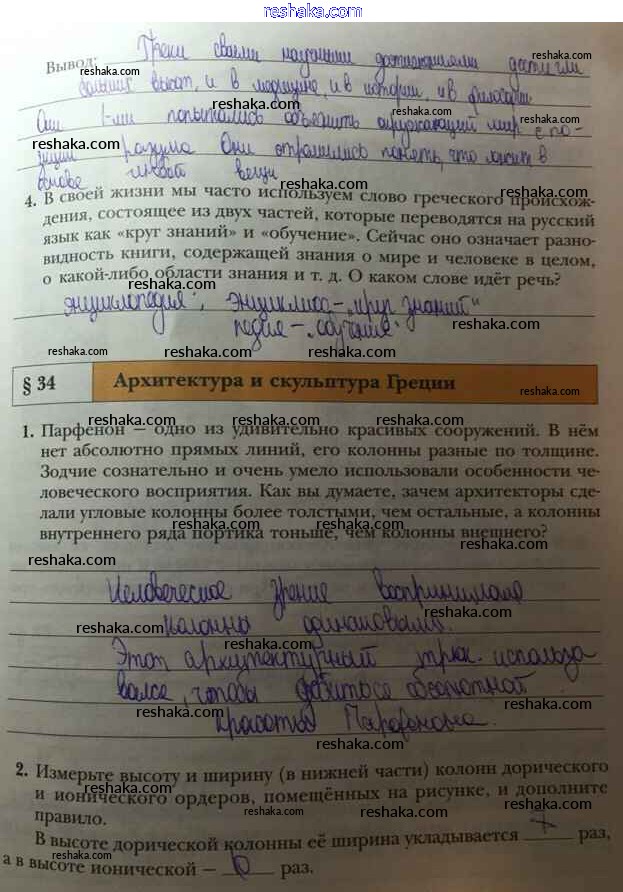 reshaka.com
Вывод: Греки своими научными достижениями достигли
больших высот, и в медицине, и в истории, и в философии
Они 1-ми попытались объединить окружающий мир с по-
зиции разума Они отправились понять, что лежит в
основе любой вещи
4. В своей жизни мы часто используем слово греческого происхож-
дения, состоящее из двух частей, которые переводятся на русский
язык как «круг знаний» и «обучение». Сейчас оно означает разно-
видность книги, содержащей знания о мире и человеке в целом,
о какой-либо области знания и т. д. О каком слове идёт речь?
энциклопедия; энциклиос-„круг знаний“
педия-„обучение“
§ 34 Архитектура и скульптура Греции
1. Парфенон — одно из удивительно красивых сооружений. В нём
нет абсолютно прямых линий, его колонны разные по толщине.
Зодчие сознательно и очень умело использовали особенности че-
ловеческого восприятия. Как вы думаете, зачем архитекторы сде-
лали угловые колонны более толстыми, чем остальные, а колонны
внутреннего ряда портика тоньше, чем колонны внешнего?
Человеческое зрение воспринимало
колонны одинаковыми.
Этот архитектурный трюк использо
вался, чтобы добиться абсолютной
красоты Парфенона.
2. Измерьте высоту и ширину (в нижней части) колонн дорического
и ионического ордеров, помещённых на рисунке, и дополните
правило.
В высоте дорической колонны её ширина укладывается 7 раз,
а в высоте ионической — раз.